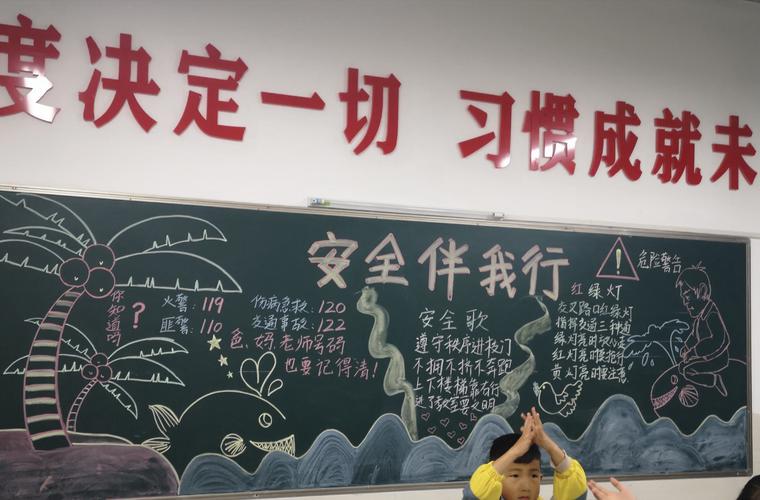 度决定一切 习惯成就未
安全伴我行
危险警告
你知道吗
?
火警:119
匪警:110
伤病急救:120
交通事故:122
爸,妈,老师号码
也要记得清!
安全歌
遵守秩序进校门
不拥不挤不奔跑
上下楼梯靠右行
进了教室要文明
红绿灯
交叉路口红绿灯
指挥交通
绿灯亮时
红灯亮时
黄灯亮时要注意
!